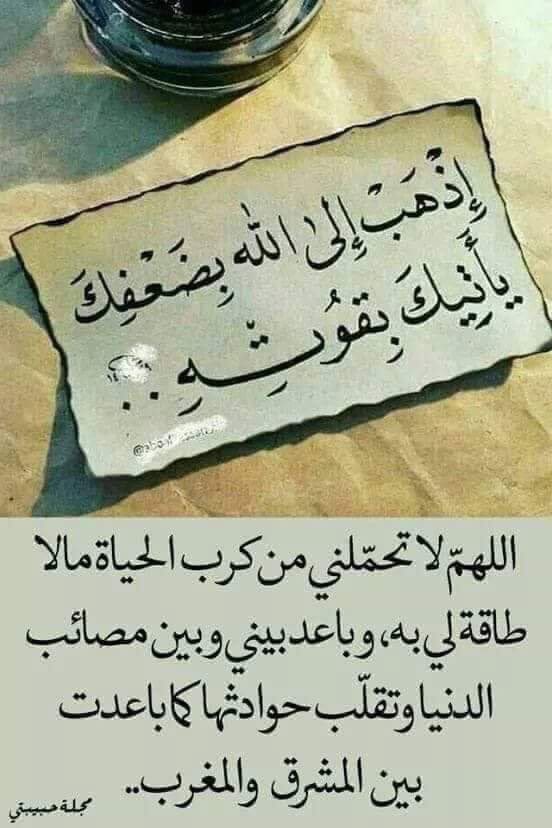 إِذْهَبْ إِلىٰ الله بِضَعْفِكَ
يَأَتِيكَ بِقوُتِّهِ ..
اللهمّ لا تحمّلني من كرب الحياة مالا
طاقة لي به، وباعد بيني وبين مصائب
الدنيا وتقلّب حوادثها كما باعدت
بين المشرق والمغرب..
مجلة حبيبتي